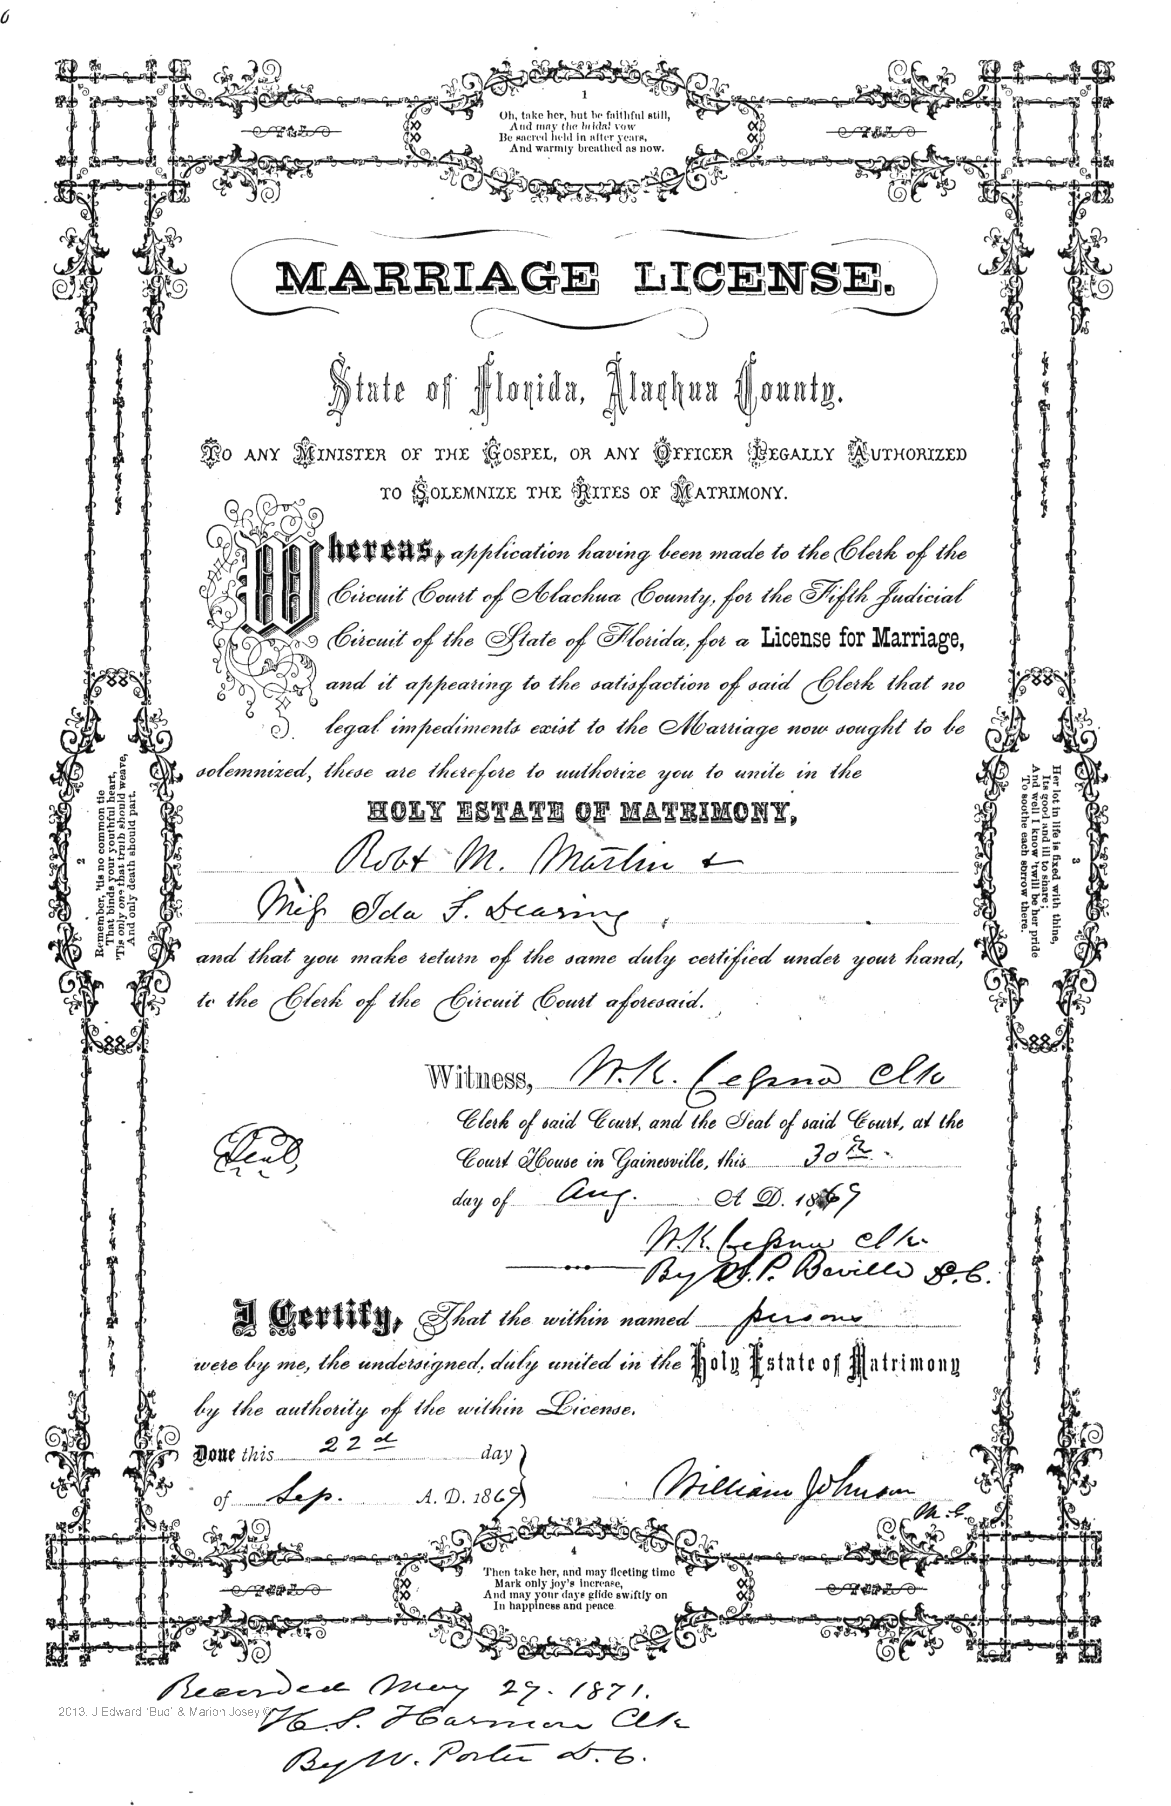 6
1
Oh, take her, but be faithful still,
And may the bridal vow
Be sacred held in after years,
And warmly breathed as now.
MARRIAGE LICENSE.
State of Florida, Alachua County.
TO ANY MINISTER OF THE GOSPEL, OR ANY OFFICER LEGALLY AUTHORIZED
TO SOLEMNIZE THE RITES OF MATRIMONY.
Whereas, application having been made to the Clerk of the
Circuit Court of Alachua County, for the Fifth Judicial
Circuit of the State of Florida, for a License for Marriage,
and it appearing to the satisfaction of said Clerk that no
legal impediments exist to the Marriage now sought to be
solemnized, these are therefore to authorize you to unite in the
HOLY ESTATE OF MATRIMONY,
Robt M. Martin &
Miss Ida F. Dearing,
and that you make return of the same duly certified under your hand,
to the Clerk of the Circuit Court aforesaid.
2
Remember, 'tis no common tie
That binds your youthful heart,
'Tis only one that truth should weave,
And only death should part.
3
Her lot in life is fixed with thine,
Its good and ill to share;
And well I know 'twill be her pride
To soothe each sorrow there.
Witness, W. K. Cessna Clk
Clerk of said Court, and the Seal of said Court, at the
Seal,
Court House in Gainesville, this 30th
day of Aug. A. D. 1869
W. K. Cessna Clk.
By P. Beville D. C.
I Certify, That the within named persons
were by me, the undersigned, duly united in the Holy Estate of Matrimony
by the authority of the within License.
Done this 22d day
of Sep. A. D. 1869
William Johnson
M. G.
4
Then take her, and may fleeting time
Mark only joy's increase,
And may your days glide swiftly on
In happiness and peace
Recorded May 29. 1871.
2013. J Edward 'Bud' & Marion Josey ©
H. S. Harmon Clk
By W. Porter D. C.